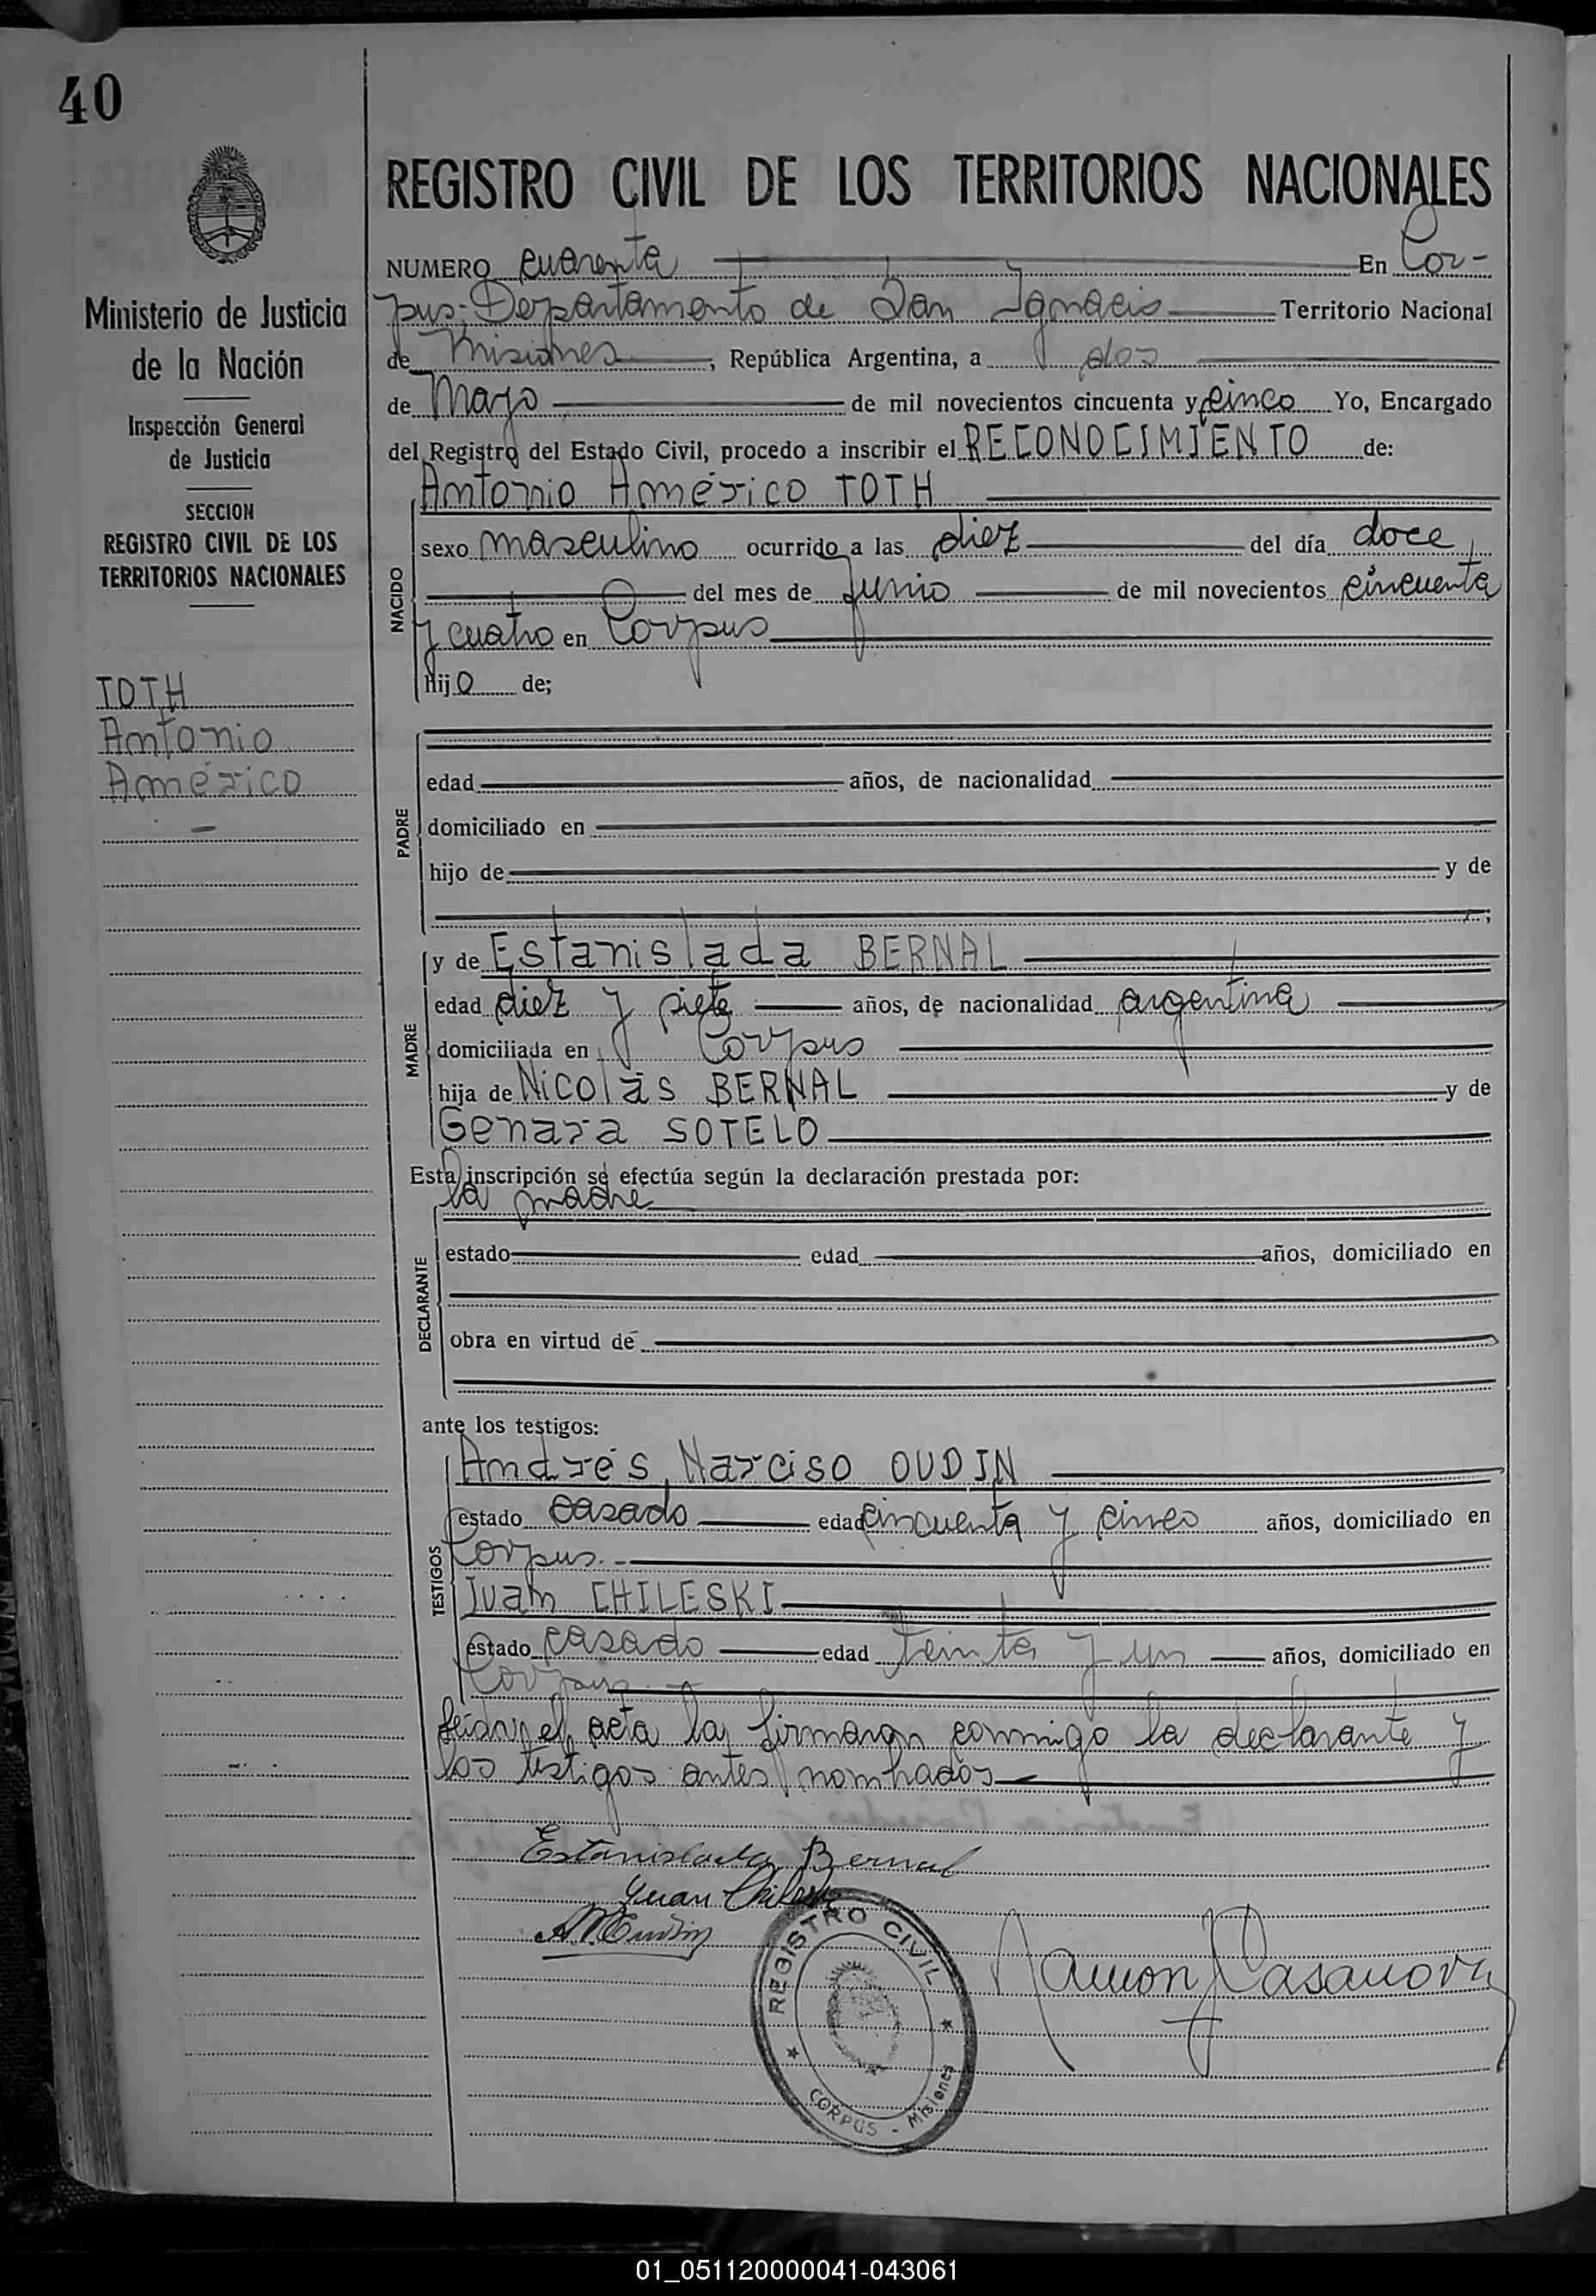 40
Ministerio de Justicia
de la Nación
Inspección General
de Justicia
SECCION
REGISTRO CIVIL DE LOS
TERRITORIOS NACIONALES
TOTH
Antonio
Américo
REGISTRO CIVIL DE LOS TERRITORIOS NACIONALES
NUMERO cuarenta En Cor-
pus-Departamento de San Ignacio Territorio Nacional
de Misiones, República Argentina, a dos
de Mayo de mil novecientos cincuenta y cinco Yo, Encargado
del Registro del Estado Civil, procedo a inscribir el RECONOCIMIENTO de:
Antonio Américo TOTH
NACIDO
sexo masculino ocurrido a las diez del día doce
del mes de Junio de mil novecientos cincuenta
y cuatro en Corpus
hijo de;
PADRE
edad años, de nacionalidad
domiciliado en
hijo de y de
;
MADRE
y de Estanislada BERNAL
edad diez y siete años, de nacionalidad argentina
domiciliada en Corpus
hija de Nicolás BERNAL y de
Genara SOTELO
Esta inscripción se efectúa según la declaración prestada por:
la madre
DECLARANTE
estado edad años, domiciliado en
obra en virtud de
ante los testigos:
TESTIGOS
Andrés Narciso OUDIN
estado casado edad cincuenta y cinco años, domiciliado en
Corpus.-
Juan CHILESKI
estado casado edad treinta y un años, domiciliado en
Corpus.-
Leída el acta la firmaron conmigo la declarante y
los testigos antes nombrados
Estanislada Bernal
Juan Chileski
A. N. Oudin
Ramon J. Casanova
REGISTRO CIVIL
CORPUS - Misiones
01_051120000041-043061